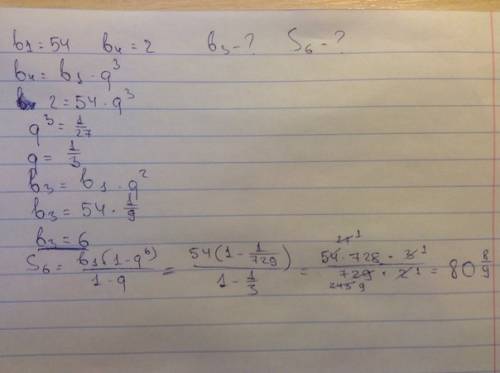 b1 = 54   b4 = 2   b3 - ?   S6 - ?
b4 = b1 · q^3
2 = 54 · q^3
q^3 = 1/27
q = 1/3
b3 = b1 · q^2
b3 = 54 · 1/9
b3 = 6
S6 = b1(1-q^6)/(1-q) = 54(1 - 1/729)/(1 - 1/3) = 54 · 728 · 3/(729 · 2) = 80 8/9